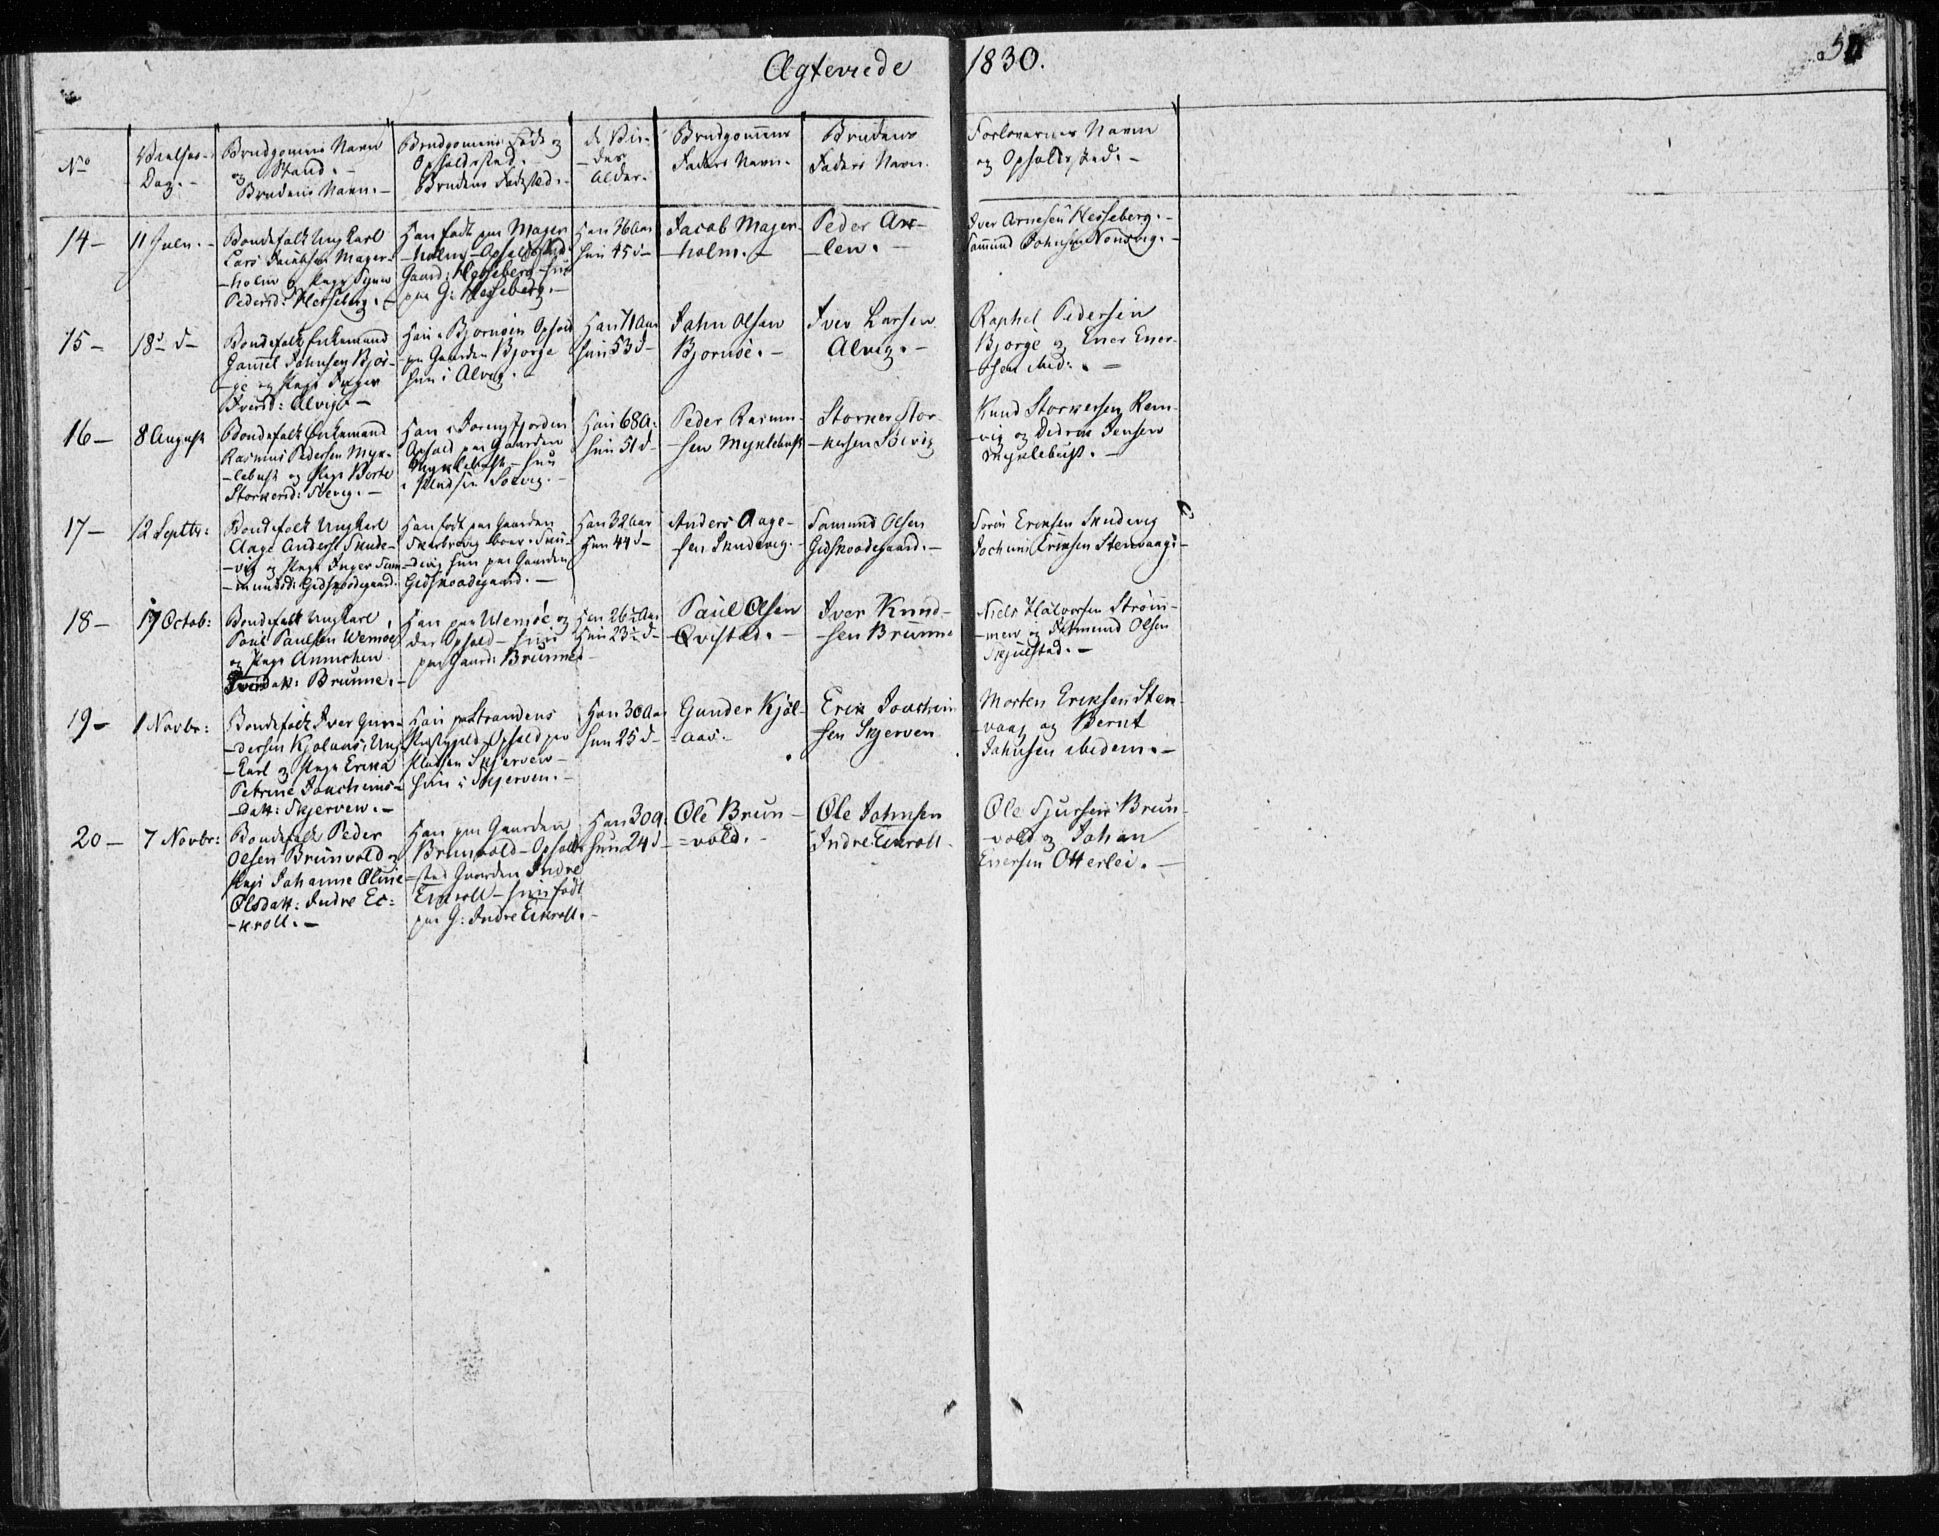 Ægteviede 1830.
No
Vielses-
Dag. -
Brudgomens Navn
og Stand. -
Brudens Navn. -
Brudgomens Føde og
Opholdsted. -
Brudens Fødested. -
de Vie-
-des
Alder.
Brudgomens
Faders Navn. -
Brudens
Faders Navn.
Forlovernes Navn
og Opholdssted. -
14 -
11 Julii. -
Bondefolk Ungkarl
Lars Jacobsen Mager-
-holm og Pige Synev
Pedersd: Hesseberg. -
Han født paa Mager-
-holm - Opholdssted
Gaard: Hesseberg - hun
paa G: Hesseberg. -
Han 36 Aar
hun 45 d -
Jacob Mager-
-holm. -
Peder Ar-
-len. -
Iver Arnesen Hesseberg. -
Samund Johnsen Nonsvig. -
15 -
18 d -
Bondefolk Enkemand
Gamel Johnsen Bjør-
-ge og Pige Inger
Iversd: Alvig -
Han i Bjørnøen Ophold
paa Gaarden Bjørge
hun i Alvig. -
Han 71 Aar
hun 53 d -
John Olsen
Bjørnøe. -
Iver Larsen
Alvig. -
Raphel Pedersen
Bjørge og Ener Ener-
-sen ibid: . -
16 -
8 August
Bondefolk Enkemand
Rasmus Pedersen Myk-
-lebust og Pige Berte
Storkersd: Søevig. -
Han i Jørngfjorden
Ophold paa Gaarden
Myklebust - hun
i Søevig. -
Han 68 A:
hun 51 d -
Peder Rasmu-
-sen Myklebust
Storker Stor-
-kersen Søevig
Knud Storkersen Rem-
-vig og Didrik Jensen
Myklebust. -
17 -
12 Septbr:
Bondefolk Ungkarl
Aage Anders: Skude-
-vig og Pige Inger Sam-
-mundsd: Gidskoodegaard.
Han født paa Gaarden
Skarbrevig boer i Sku-
-devig hun paa Gaarden
Gidskoodegaard. -
Han 32 Aar
Hun 44 d -
Anders Aage-
-sen Skudevig. -
Samund Olsen
Gidskoodegaard. -
Søren Eriksen Skudevig
Jochum Eriksen Stenvaag: -
18 -
17 Octob:
Bondefolk Ungkarl
Poul Paulsen Wemøe
og Pige Annichen
Iversdat: Brunne. -
Han paa Wemøe og
der Ophold - hun
paa Gaard: Brunnes
Han 26½ Aar
hun 23½ d -
Paul Olsen
Qvistad. -
Iver Knud-
-sen Brunne
Niels Halvorsen Strøm-
-men og Samund Olsen
Skjelstad. -
19 -
1 Novbr:
Bondefolk Iver Gun-
-dersen Kjølaas, Ung-
-Karl og Pige Erika
Petrine Joachims-
-Dat: Skjerven. -
Han paa Strandens
Præstegield - Ophold paa
Pladsen Skjerven -
hun i Skjerven. -
Han 30 Aar
hun 25 d -
Gunder Kjøl-
-aas. -
Erik Joachim-
-sen Skjerven
Morten Eriksen Sten-
-vaag og Bernt
Johnsen ibidem. -
20 -
7 Novbr:
Bondefolk Peder
Olsen Brunvold og
Pige Johanne Oline
Olsdat: Indre Ec-
-kroll. -
Han paa Gaarden
Brunvold - Ophold-
-sted Gaarden Indre
Eikroll - hun født
paa G: Indre Eikroll. -
Han 30 A.
hun 24 d -
Ole Brun-
-vold. -
Ole Johnsen
Indre Eikroll.
Ole Sjursen Brun-
-vold og Johan
Enersen Otterlei. -